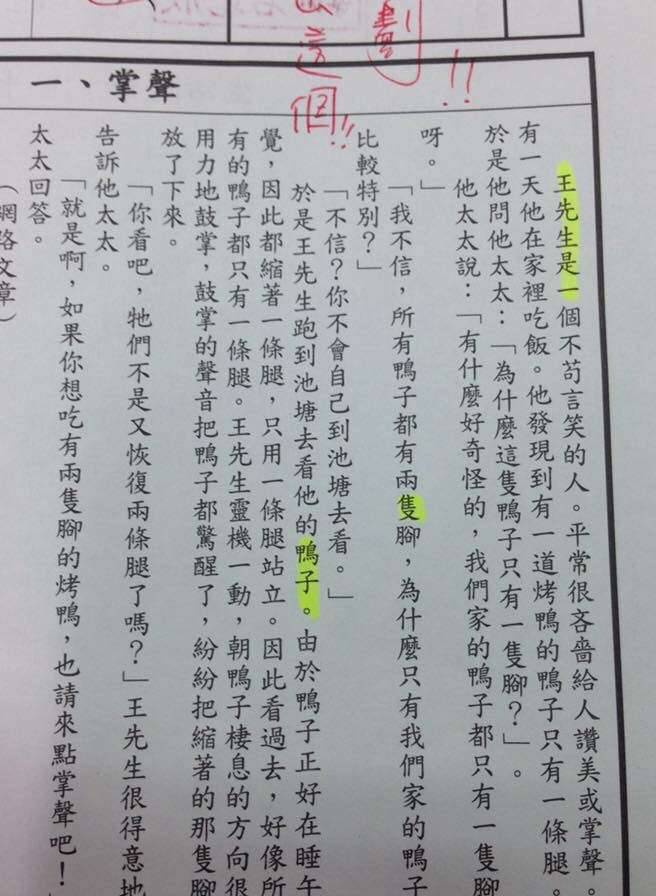 劃!!
這個!!
一、掌聲
王先生是一個不苟言笑的人。平常很吝嗇給人讚美或掌聲。
有一天他在家裡吃飯。他發現到有一道烤鴨的鴨子只有一條腿。
於是他問他太太：「為什麼這隻鴨子只有一隻腳？」。
他太太說：「有什麼好奇怪的，我們家的鴨子都只有一隻腳
呀。」
「我不信，所有鴨子都有兩隻腳，為什麼只有我們家的鴨子
比較特別？」
「不信？你不會自己到池塘去看。」
於是王先生跑到池塘去看他的鴨子。由於鴨子正好在睡午
覺，因此都縮著一條腿，只用一條腿站立。因此看過去，好像所
有的鴨子都只有一條腿。王先生靈機一動，朝鴨子棲息的方向很
用力地鼓掌，鼓掌的聲音把鴨子都驚醒了，紛紛把縮著的那隻腳
放了下來。
「你看吧，牠們不是又恢復兩條腿了嗎？」王先生很得意地
告訴他太太。
「就是啊，如果你想吃有兩隻腳的烤鴨，也請來點掌聲吧！」
太太回答。
（網路文章）